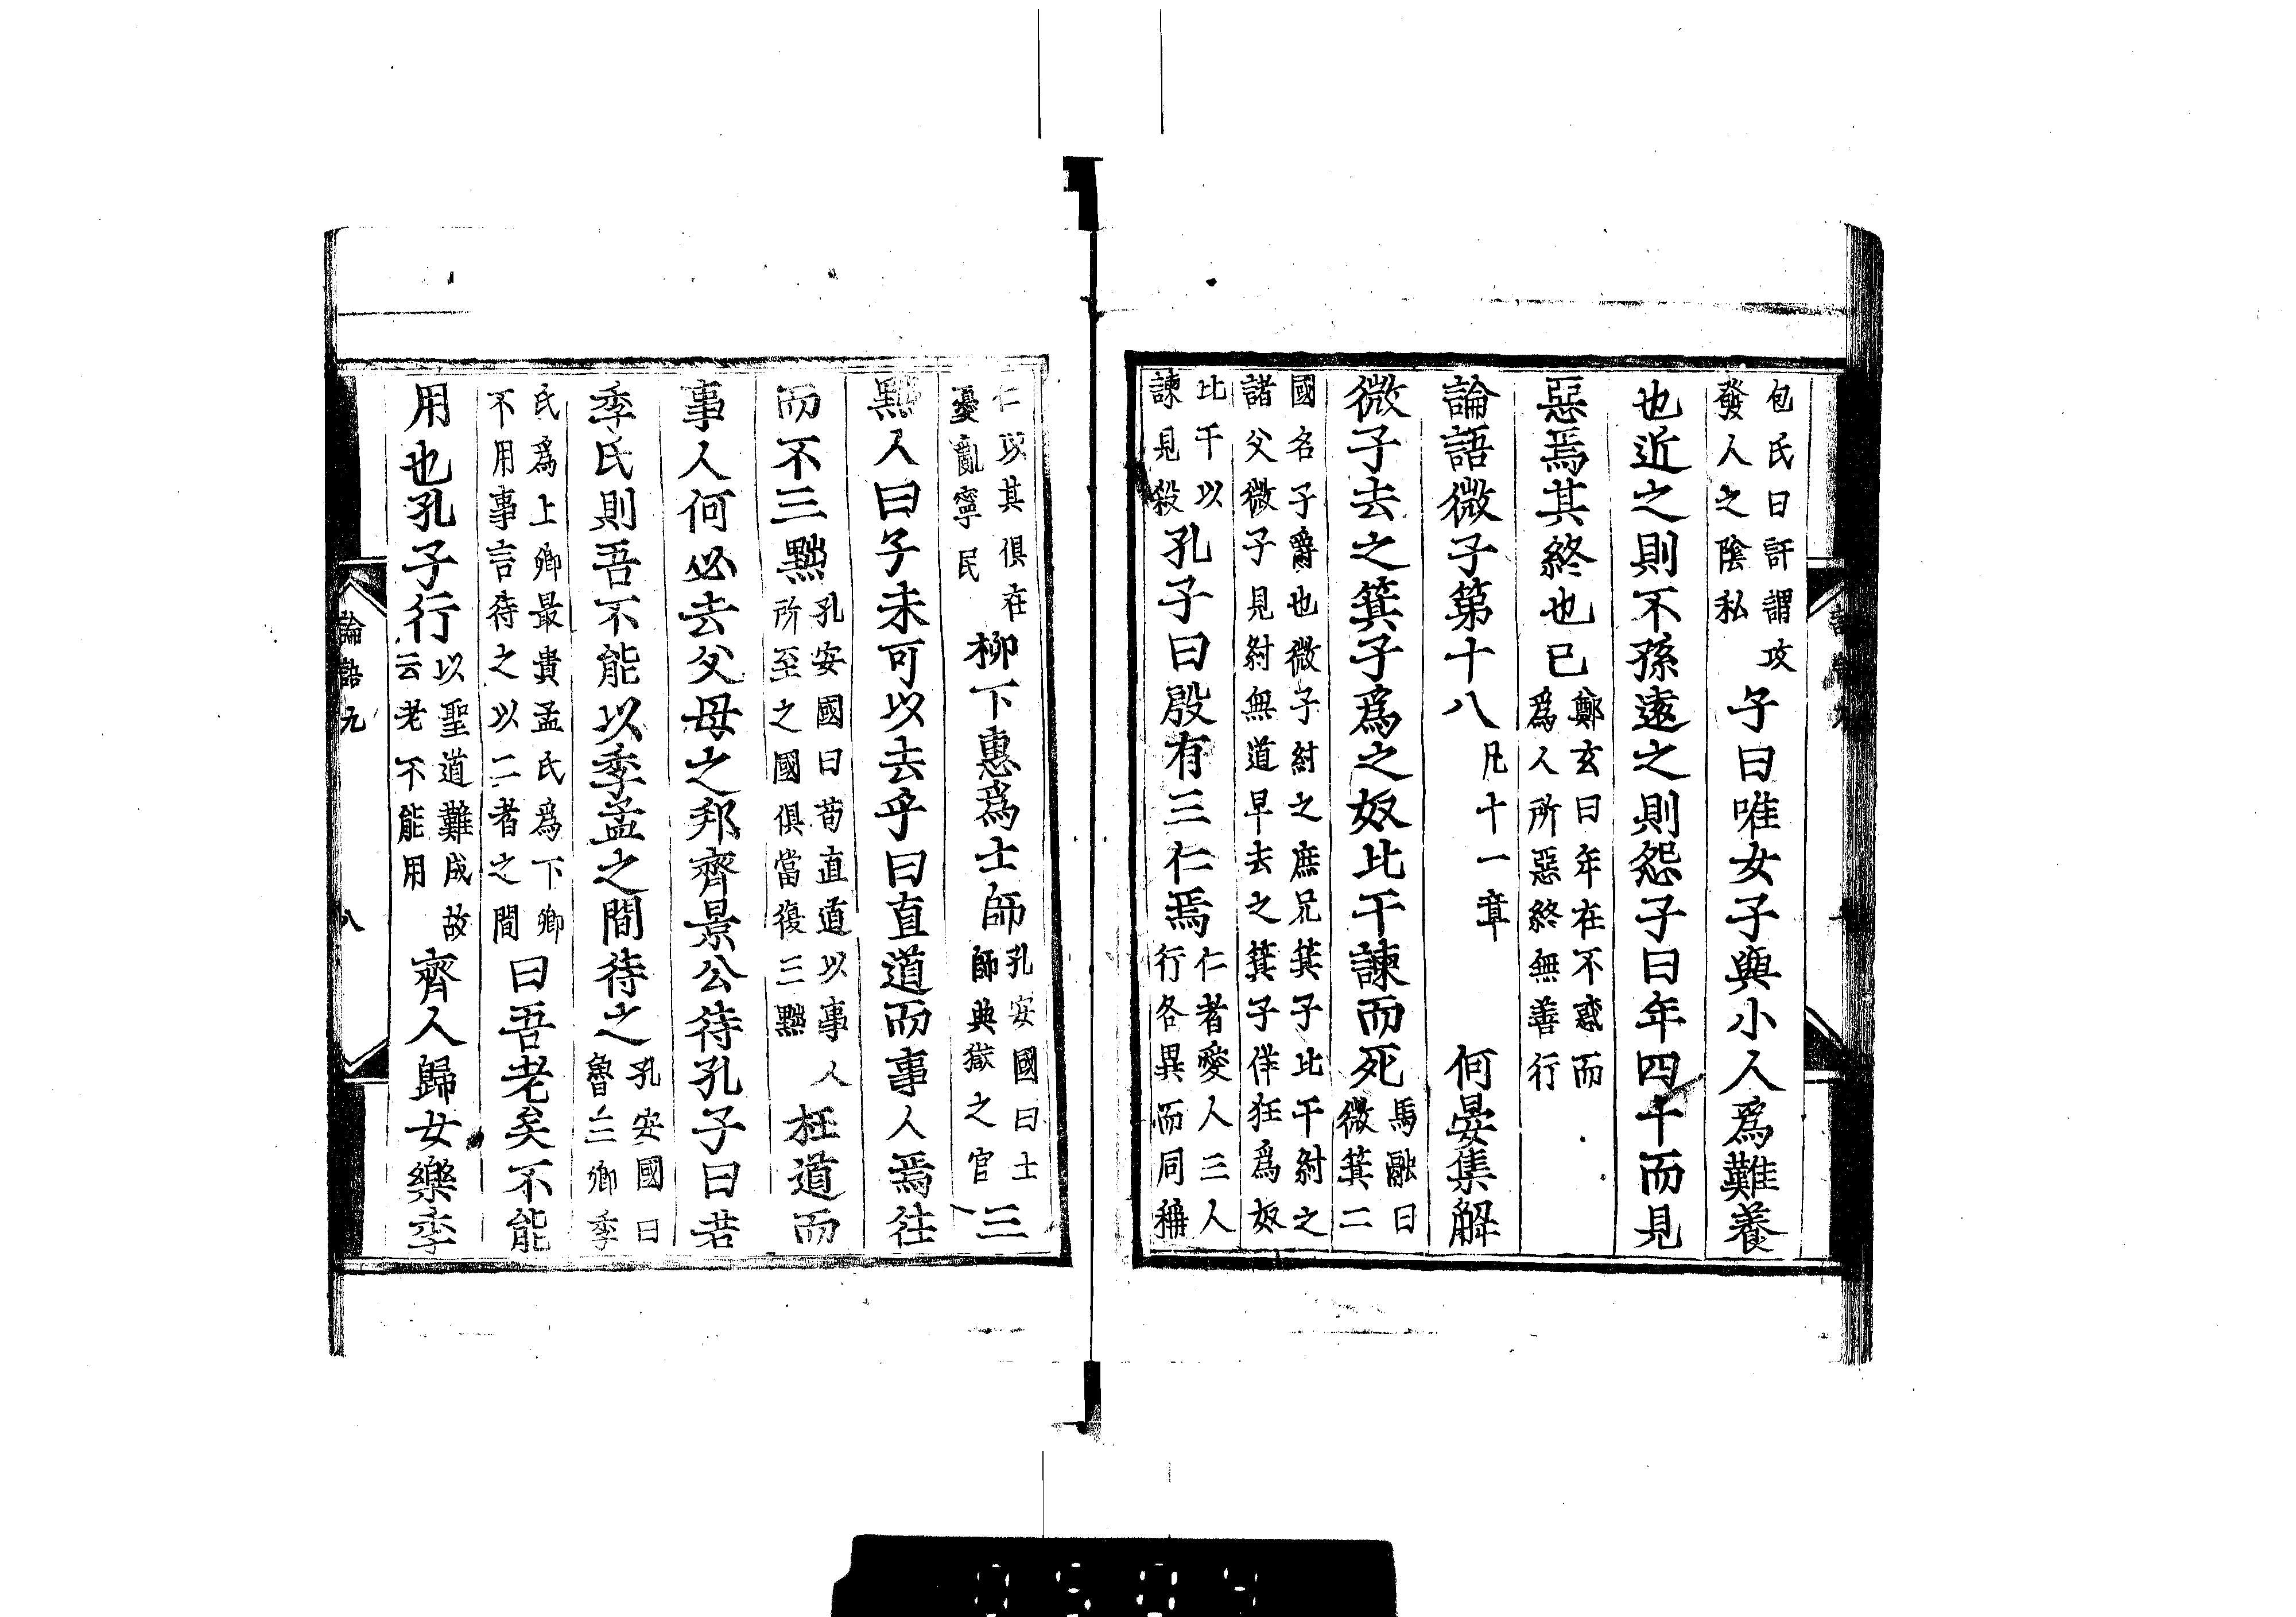 包氏曰訐謂攻
發人之陰私
子曰唯女子與小人爲難養
也近之則不孫遠之則怨子曰年四十而見
惡焉其終也已
鄭玄曰年在不惑而
爲人所惡終無善行
論語微子第十八
凡十一章
何晏集解
微子去之箕子爲之奴比干諫而死
馬融曰
微箕二
國名子爵也微子紂之庶兄箕子比干紂之
諸父微子見紂無道早去之箕子佯狂爲奴
比干以
諫見殺
孔子曰殷有三仁焉
仁者愛人三人
行各異而同稱
仁以其俱在
憂亂寧民
柳下惠爲士師
孔安國曰士
師典獄之官
三
黜人曰子未可以去乎曰直道而事人焉往
而不三黜
孔安國曰苟直道以事人
所至之國俱當復三黜
枉道而
事人何必去父母之邦齊景公待孔子曰若
季氏則吾不能以季孟之間待之
孔安國曰
魯三卿季
氏爲上卿最貴孟氏爲下卿
不用事言待之以二者之間
曰吾老矣不能
用也孔子行
以聖道難成故
云老不能用
齊人歸女樂季
論語九
八